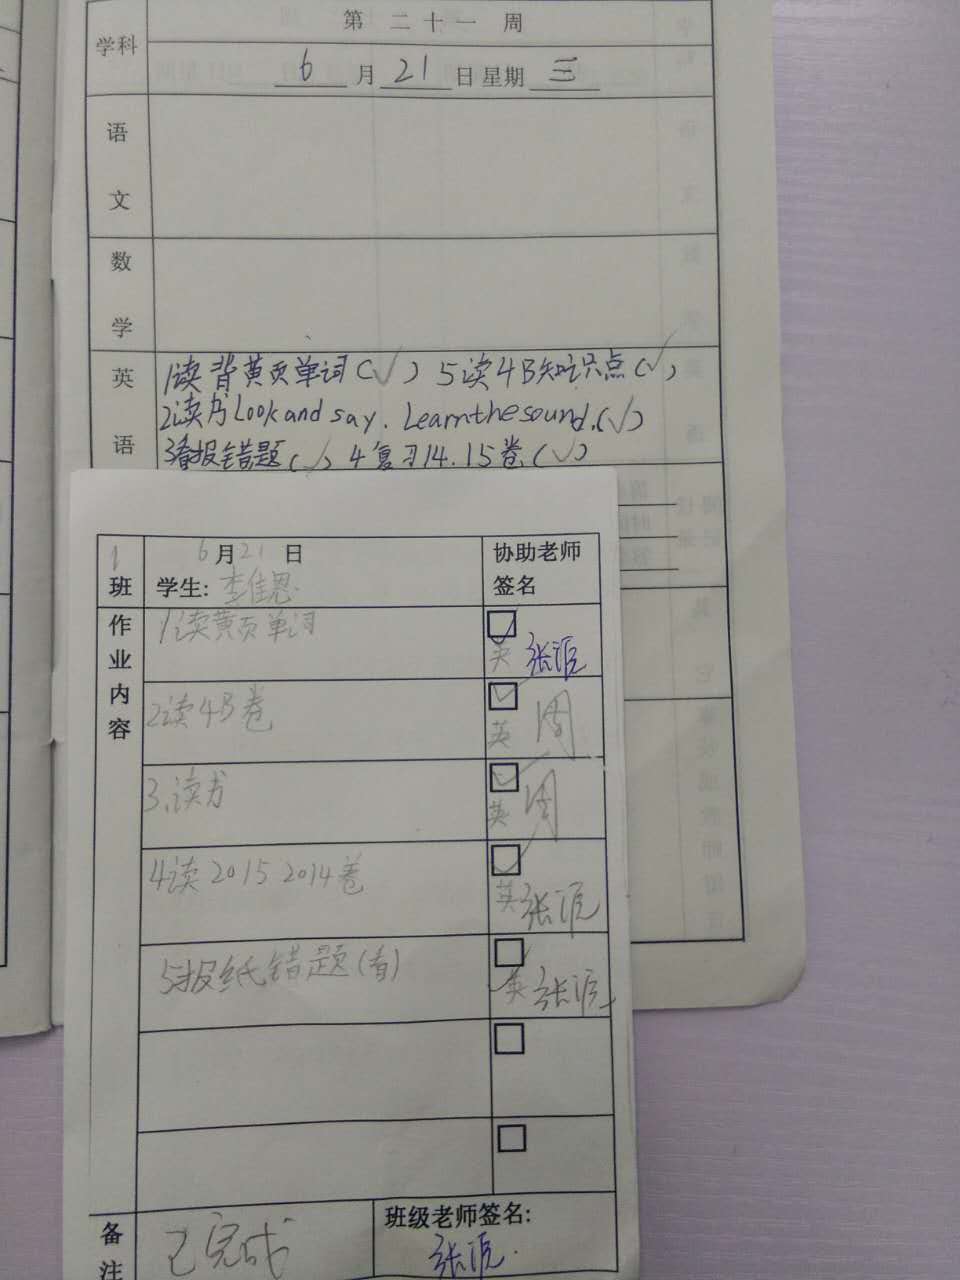 学科
第二十一周
6月21日星期三
语文
数学
英语
1读背黄页单词(√) 5读4B知识点(√)
2读书Look and say. Learn the sound.(√)
3看报错题(√) 4复习14.15卷(√)
1班
6月21日
学生:李佳恩
协助老师签名
作业内容
1读黄页单词
英
2读4B卷
英 周
3.读书
英 周
4读2015 2014卷
英
5报纸错题(看)
英
备注
已完成
班级老师签名: